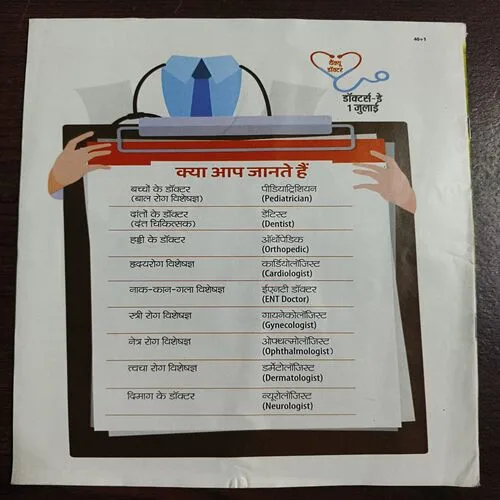 40+1
थैंक्यू
डॉक्टर
डॉक्टर्स-डे
1 जुलाई
क्या आप जानते हैं
बच्चों के डॉक्टर पीडियाट्रिशियन
(बाल रोग विशेषज्ञ) (Pediatrician)
दांतों के डॉक्टर डेंटिस्ट
(दंत चिकित्सक) (Dentist)
हड्डी के डॉक्टर ऑर्थोपेडिक
(Orthopedic)
हृदयरोग विशेषज्ञ कार्डियोलॉजिस्ट
(Cardiologist)
नाक-कान-गला विशेषज्ञ ईएनटी डॉक्टर
(ENT Doctor)
स्त्री रोग विशेषज्ञ गायनेकोलॉजिस्ट
(Gynecologist)
नेत्र रोग विशेषज्ञ ओफ्थल्मोलॉजिस्ट
(Ophthalmologist)
त्वचा रोग विशेषज्ञ डर्मेटोलॉजिस्ट
(Dermatologist)
दिमाग के डॉक्टर न्यूरोलॉजिस्ट
(Neurologist)